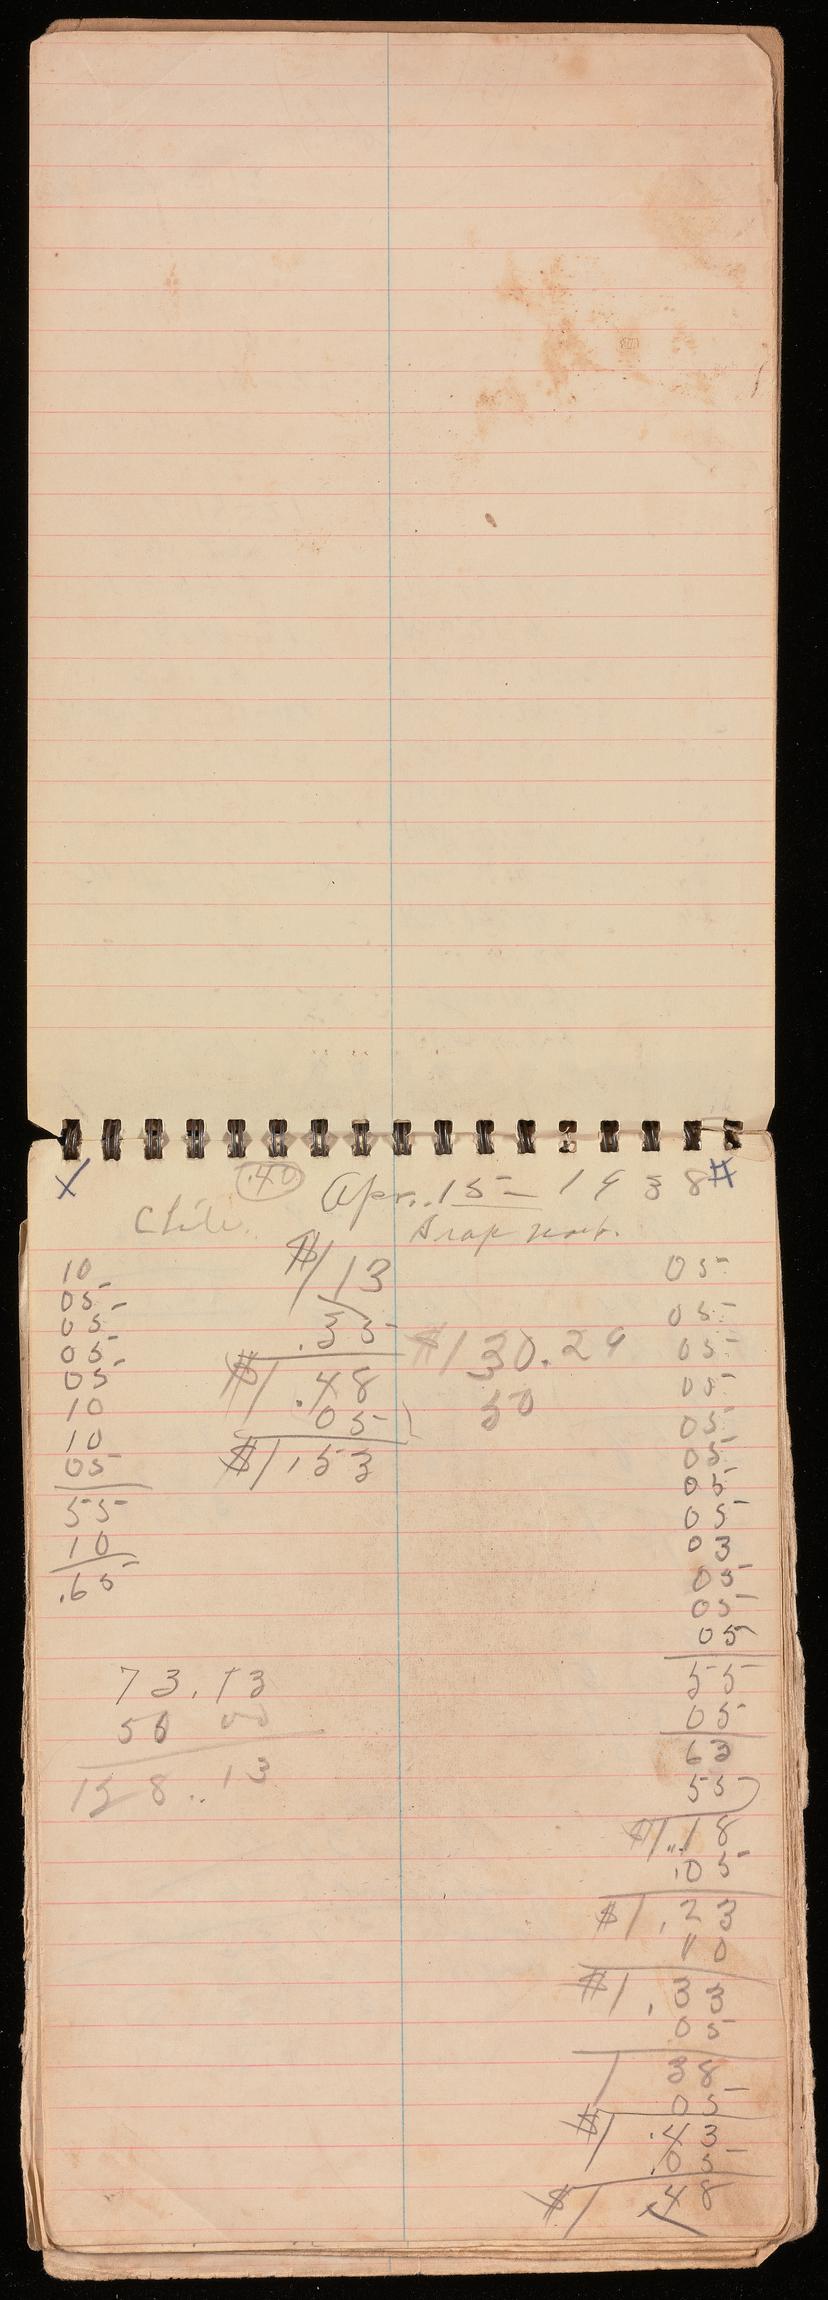 X .40 Apr. 15 - 1938 #
Chile.
10
05
05
05
05
10
10
05
55
10
.65
$1 13
.35
$1.48
05
$1.53
$130.29
50
73.13
50 00
8..13
05
05
05
05
05
05
05
05
03
05
05
05
55
05
63
55
$1..18
.05
$1.23
10
$1.33
05
1 38
05
$1.43
.05
$1 48